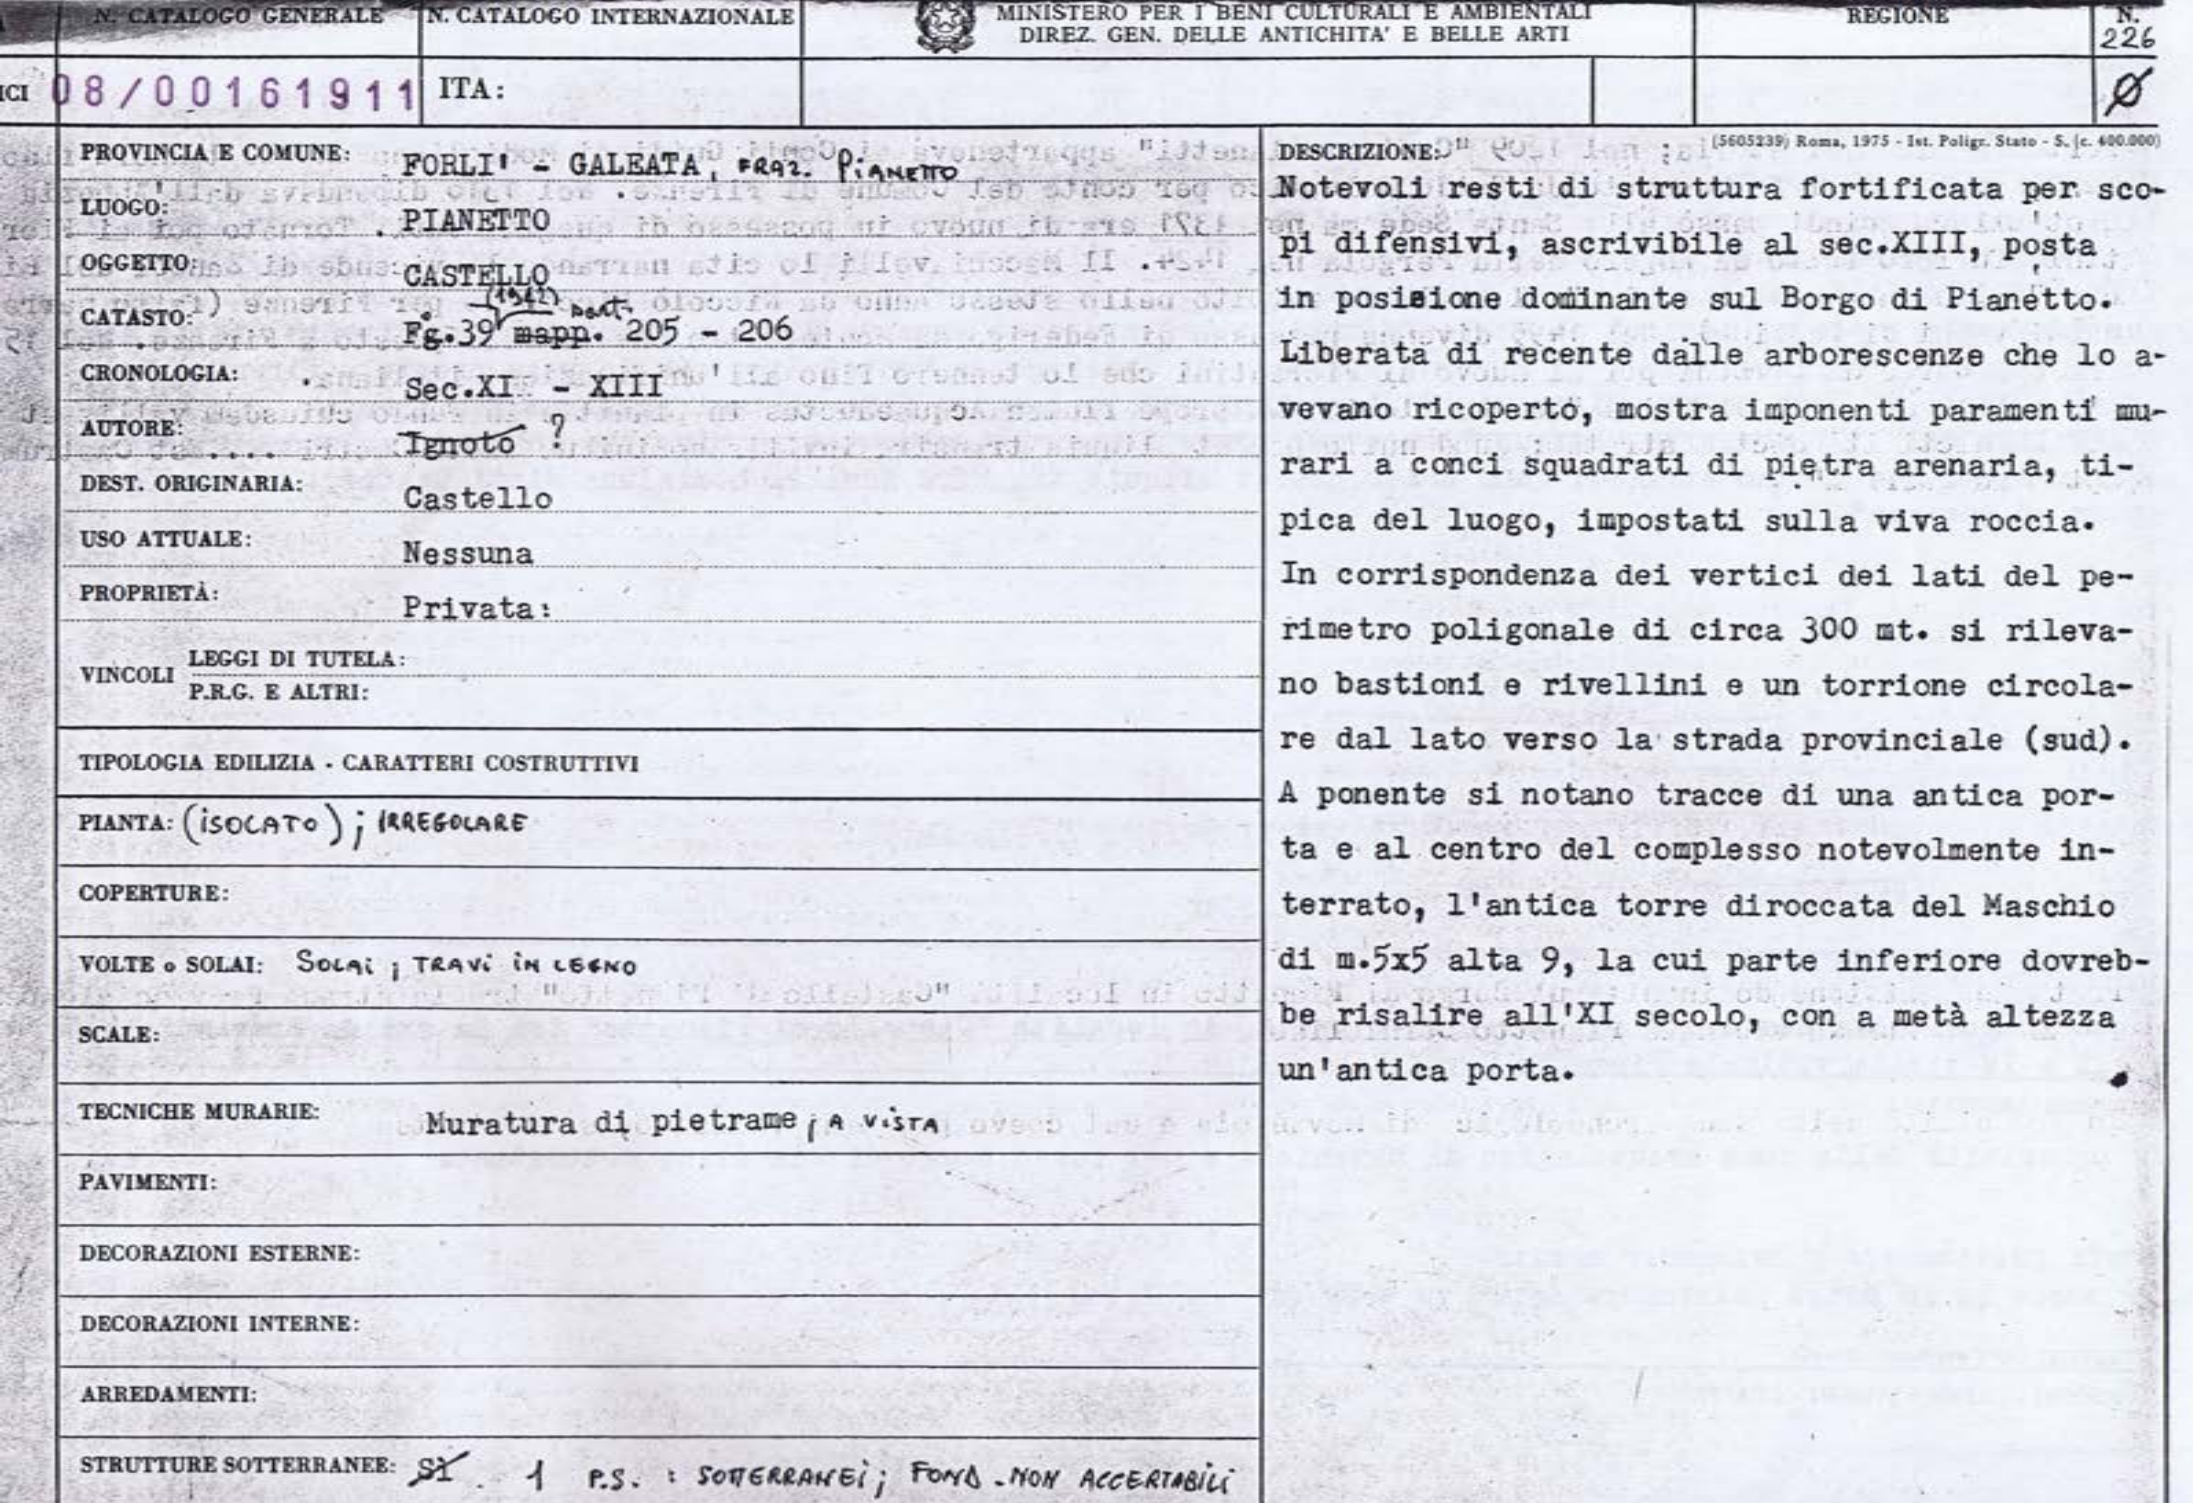 N. CATALOGO GENERALE
N. CATALOGO INTERNAZIONALE
MINISTERO PER I BENI CULTURALI E AMBIENTALI
DIREZ. GEN. DELLE ANTICHITA' E BELLE ARTI
REGIONE
N.
226
ICI
08/00161911
ITA:
Ø
PROVINCIA E COMUNE: FORLI' - GALEATA, FRAZ. PiANETTO
LUOGO: PIANETTO
OGGETTO: CASTELLO
(1942) part.
CATASTO: Fg.39 mapp. 205 - 206
CRONOLOGIA: Sec.XI - XIII
AUTORE: Ignoto ?
DEST. ORIGINARIA: Castello
USO ATTUALE: Nessuna
PROPRIETÀ: Privata:
VINCOLI
LEGGI DI TUTELA:
P.R.G. E ALTRI:
TIPOLOGIA EDILIZIA - CARATTERI COSTRUTTIVI
PIANTA: (iSOLATO); IRREGOLARE
COPERTURE:
VOLTE o SOLAI: SOLAi; TRAVi iN LEGNO
SCALE:
TECNICHE MURARIE: Muratura di pietrame; A ViSTA
PAVIMENTI:
DECORAZIONI ESTERNE:
DECORAZIONI INTERNE:
ARREDAMENTI:
STRUTTURE SOTTERRANEE: SI 1 P.S. : SOTTERRANEi; FOND. NON ACCERTABILi
DESCRIZIONE:
(5605239) Roma, 1975 - Ist. Poligr. Stato - S. (c. 400.000)
Notevoli resti di struttura fortificata per sco-
pi difensivi, ascrivibile al sec.XIII, posta
in posizione dominante sul Borgo di Pianetto.
Liberata di recente dalle arborescenze che lo a-
vevano ricoperto, mostra imponenti paramenti mu-
rari a conci squadrati di pietra arenaria, ti-
pica del luogo, impostati sulla viva roccia.
In corrispondenza dei vertici dei lati del pe-
rimetro poligonale di circa 300 mt. si rileva-
no bastioni e rivellini e un torrione circola-
re dal lato verso la strada provinciale (sud).
A ponente si notano tracce di una antica por-
ta e al centro del complesso notevolmente in-
terrato, l'antica torre diroccata del Maschio
di m.5x5 alta 9, la cui parte inferiore dovreb-
be risalire all'XI secolo, con a metà altezza
un'antica porta.